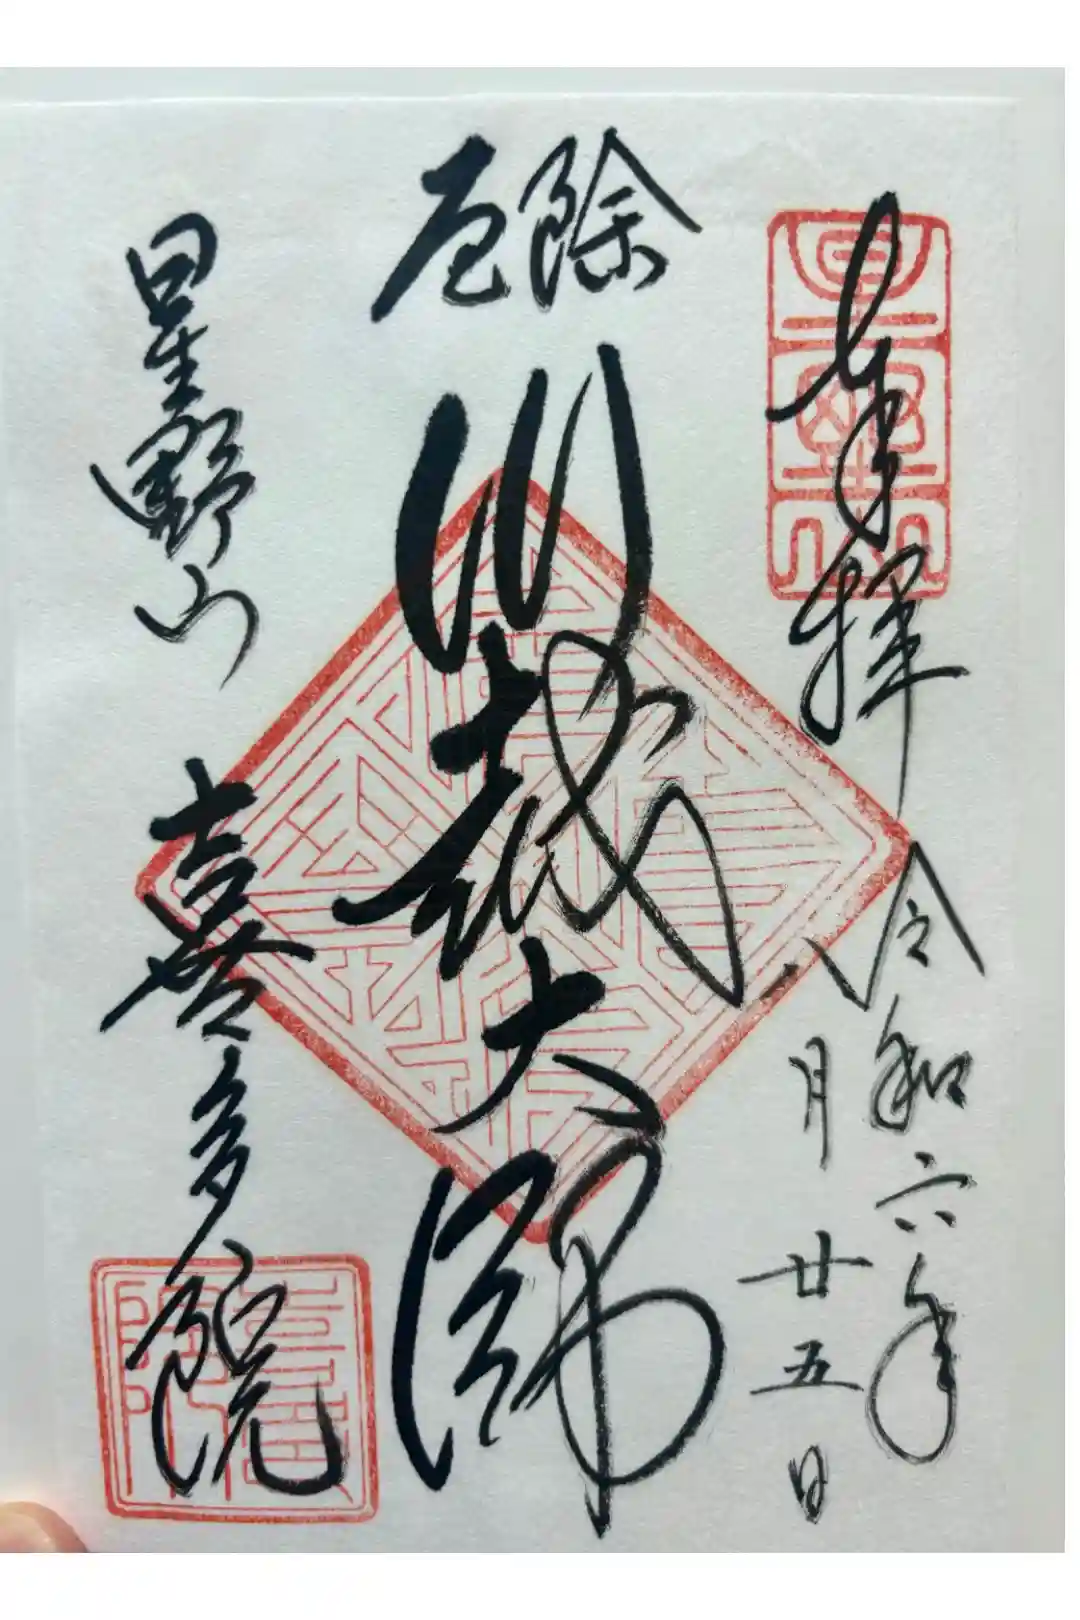 奉拝
令和六年
八月廿五日
除厄
川越大師
星野山
喜多院